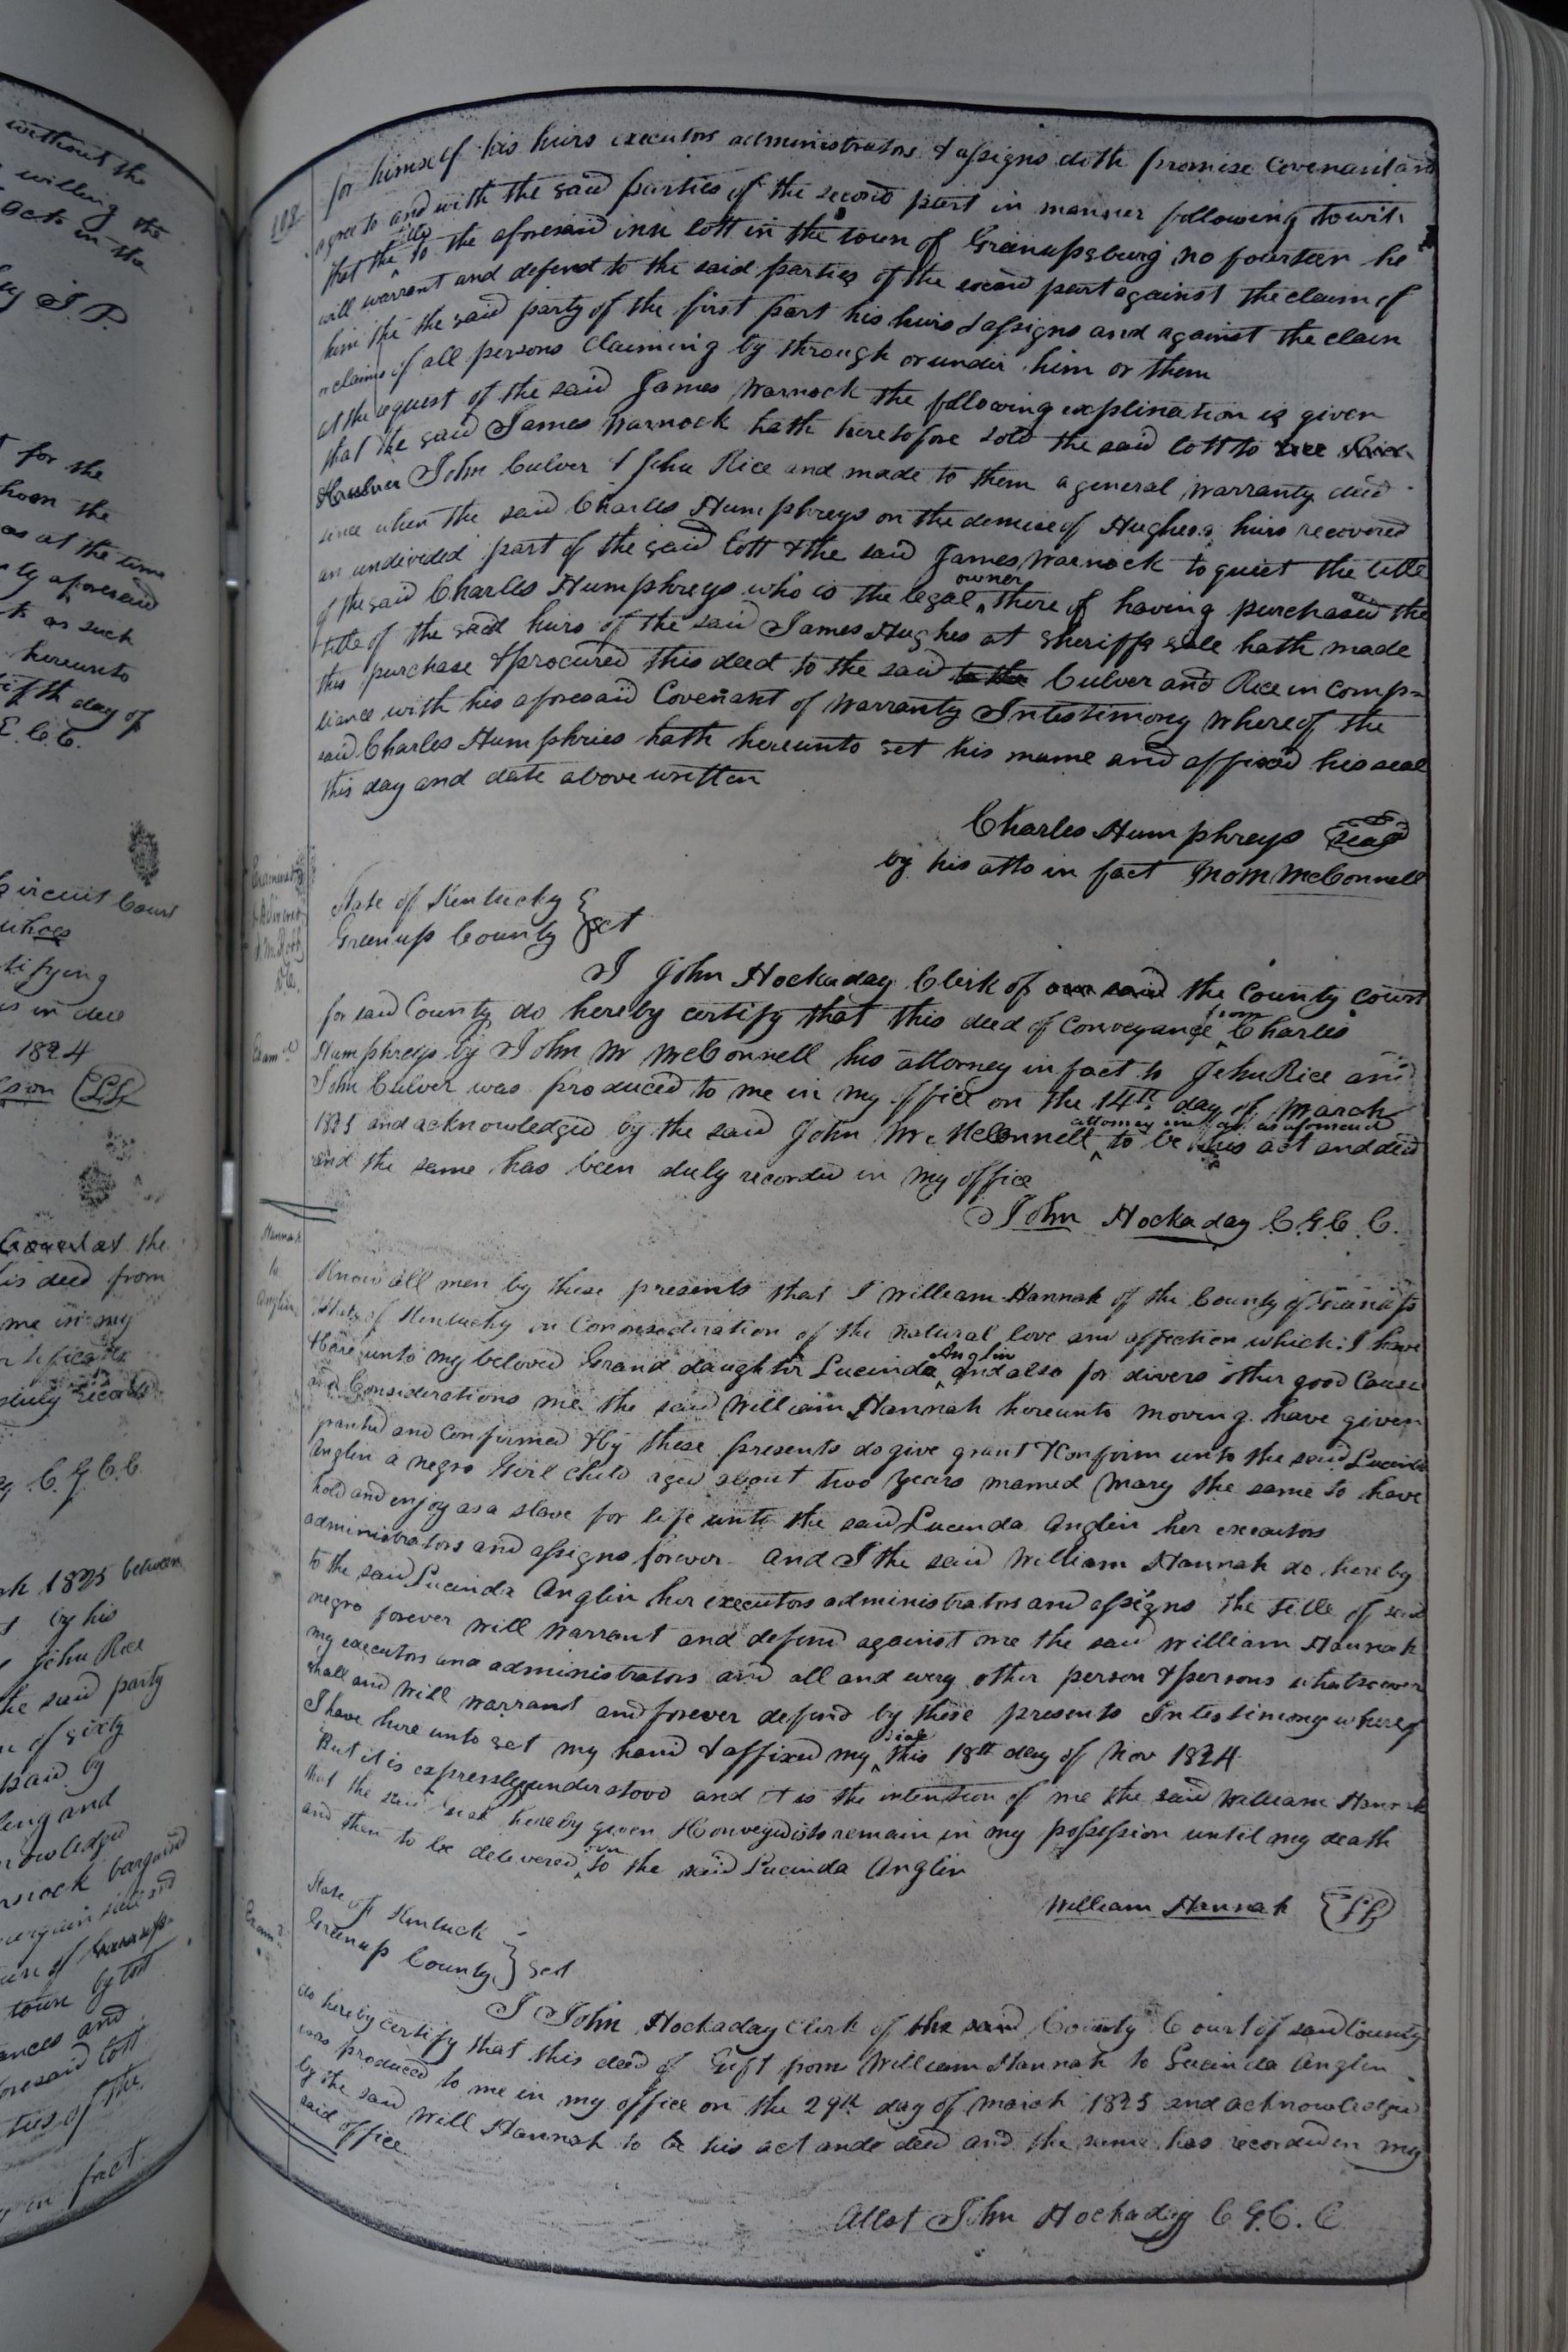 without the
willing the
acts in the
J. P.
for the
as at the time
ty aforesaid
as such
hereunto
fifth day of
Circuit Court
tifying
is in due
1824
at the
is deed from
me in my
duly recorded
C. G. C. C.
1825 between
by his
John Rice
the said party
of sixty
said by
ing and
town by lot
ances and
foresaid lott
ties of the
in fact
108
for himself his heirs executors administrators & assigns doth promise Covenant and
agree to and with the said parties of the second part in manner following towit
that the title to the aforesaid inn lott in the town of Greenupsburg no fourteen he
will warrant and defend to the said parties of the second part against the claim of
him the the said party of the first part his heirs & assigns and against the claim
or claims of all persons claiming by through or under him or them
at the request of the said James Warnock the following explination is given
that the said James Warnock hath heretofore sold the said lott to
John Culver & John Rice and made to them a general warranty deed
since when the said Charles Humphreys on the demise of Hughes's heirs recovered
an undivided part of the said lott & the said James Warnock to quiet the title
of the said Charles Humphreys who is the legal owner there of having purchased the
title of the said heirs of the said James Hughes at Sheriffs sale hath made
this purchase & procured this deed to the said to the Culver and Rice in comp=
liance with his aforesaid Covenant of Warranty Intestimony whereof the
said Charles Humphries hath hereunto set his name and affixed his seal
this day and date above written
Charles Humphreys Seal
by his atto in fact Jno M McConnell
State of Kentucky
Greenup County } sct
I John Hockaday Clerk of our said the County court
for said County do hereby certify that this deed of conveyance from Charles
Exam.d
Humphreys by John M McConnell his attorney in fact to John Rice and
John Culver was produced to me in my office on the 14th day of March
1825 and acknowledged by the said John M. McConnell attorney as aforesaid to be his act and deed
and the same has been duly recorded in my office
John Hockaday C. G. C. C.
Hannah
to
Anglin
Know all men by these presents that I William Hannah of the County of Greenup
State of Kentucky in Cononsederation of the natural love and affection which I have
& bare unto my beloved Grand daughter Lucinda Anglin and also for divers other good Cause
and Considerations me the said William Hannah hereunto moving have given
granted and confirmed & by these presents do give grant & Confirm unto the said Lucinda
Anglin a negro Girl child aged about two years named Mary the same to have
hold and enjoy as a slave for life unto the said Lucinda Anglin her executors
administrators and assigns forever And I the said William Hannah do hereby
to the said Lucinda Anglin her executors administrators and assigns the title of said
negro forever will Warrant and defend against me the said William Hannah
my executors and administrators and all and every other person & persons whatsoever
shall and will warrant and forever defend by these presents Intestimony whereof
I have here unto set my hand & affixed my seal this 18th day of Nov 1824
But it is expressly understood and it is the intention of me the said William Hannah
that the said hereby given & Conveyed is to remain in my possession until my death
and then to be delivered over to the said Lucinda Anglin
William Hannah
Exam.d
State of Kentuck
Greenup County } sct
I John Hockaday Clerk of the said County Court of said County
do hereby certify that this deed of Gift from William Hannah to Lucinda Anglin
was produced to me in my office on the 29th day of March 1825 and acknowledged
by the said Will Hannah to be his act and deed and the same has recorded in my
said office
Attest John Hockaday C G. C. C